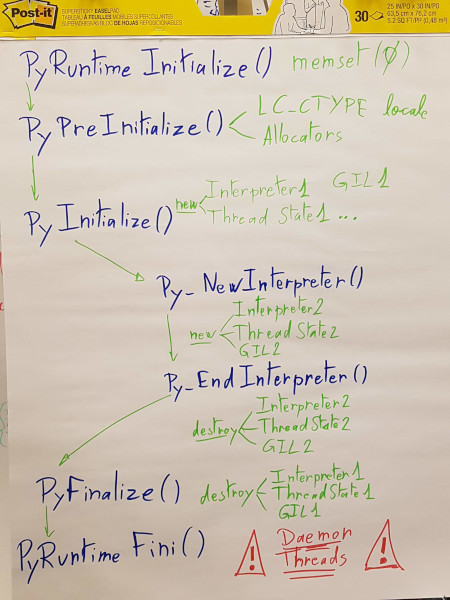 Post-it
SUPERSTICKY EASELPAD
TABLEAU À FEUILLES MOBILES SUPERCOLLANTES
30
25 IN/PO x 30 IN/PO
63,5 cm x 76,2 cm
5.2 SQ FT/PI² (0,48 m²)
PyRuntime Initialize() memset(0)
PyPreInitialize() LC_CTYPE locale
Allocators
Py Initialize() new Interpreter1 GIL1
Thread State1 ...
Py_NewInterpreter()
Interpreter2
new Thread State2
GIL2
Py_EndInterpreter()
Interpreter2
destroy Thread State2
GIL2
PyFinalize() destroy Interpreter1
ThreadState1
GIL1
PyRuntime Fini() ! Daemon !
Threads